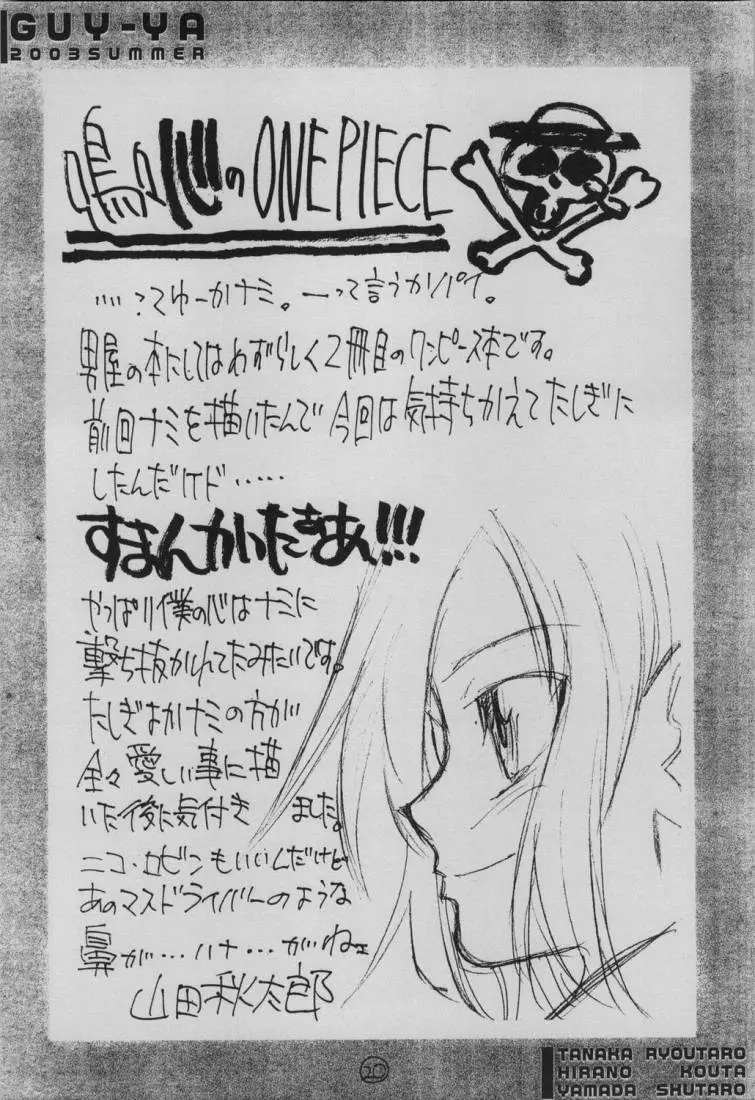 GUY-YA
2003SUMMER
のONE PIECE
……ってゆーかナミ。―って言うかパイ。
男屋の本にしてはめずらしく2冊目のワンピース本です。
前回ナミを描いたんで今回は気持ちかえてたしぎに
したんだケド……
すまんかいたきあん!!!
やっぱり僕の心はナミに
撃ち抜かれてたみたいです。
たしぎよかナミの方が
全々愛しい事に描
いた後に気付き ました。
ニコ・ロビンもいいんだけど
あのマスドライバーのような
鼻が…ハナ…がねェ
山田秋太郎
20
TANAKA RYOUTARO
HIRANO KOUTA
YAMADA SHUTARO